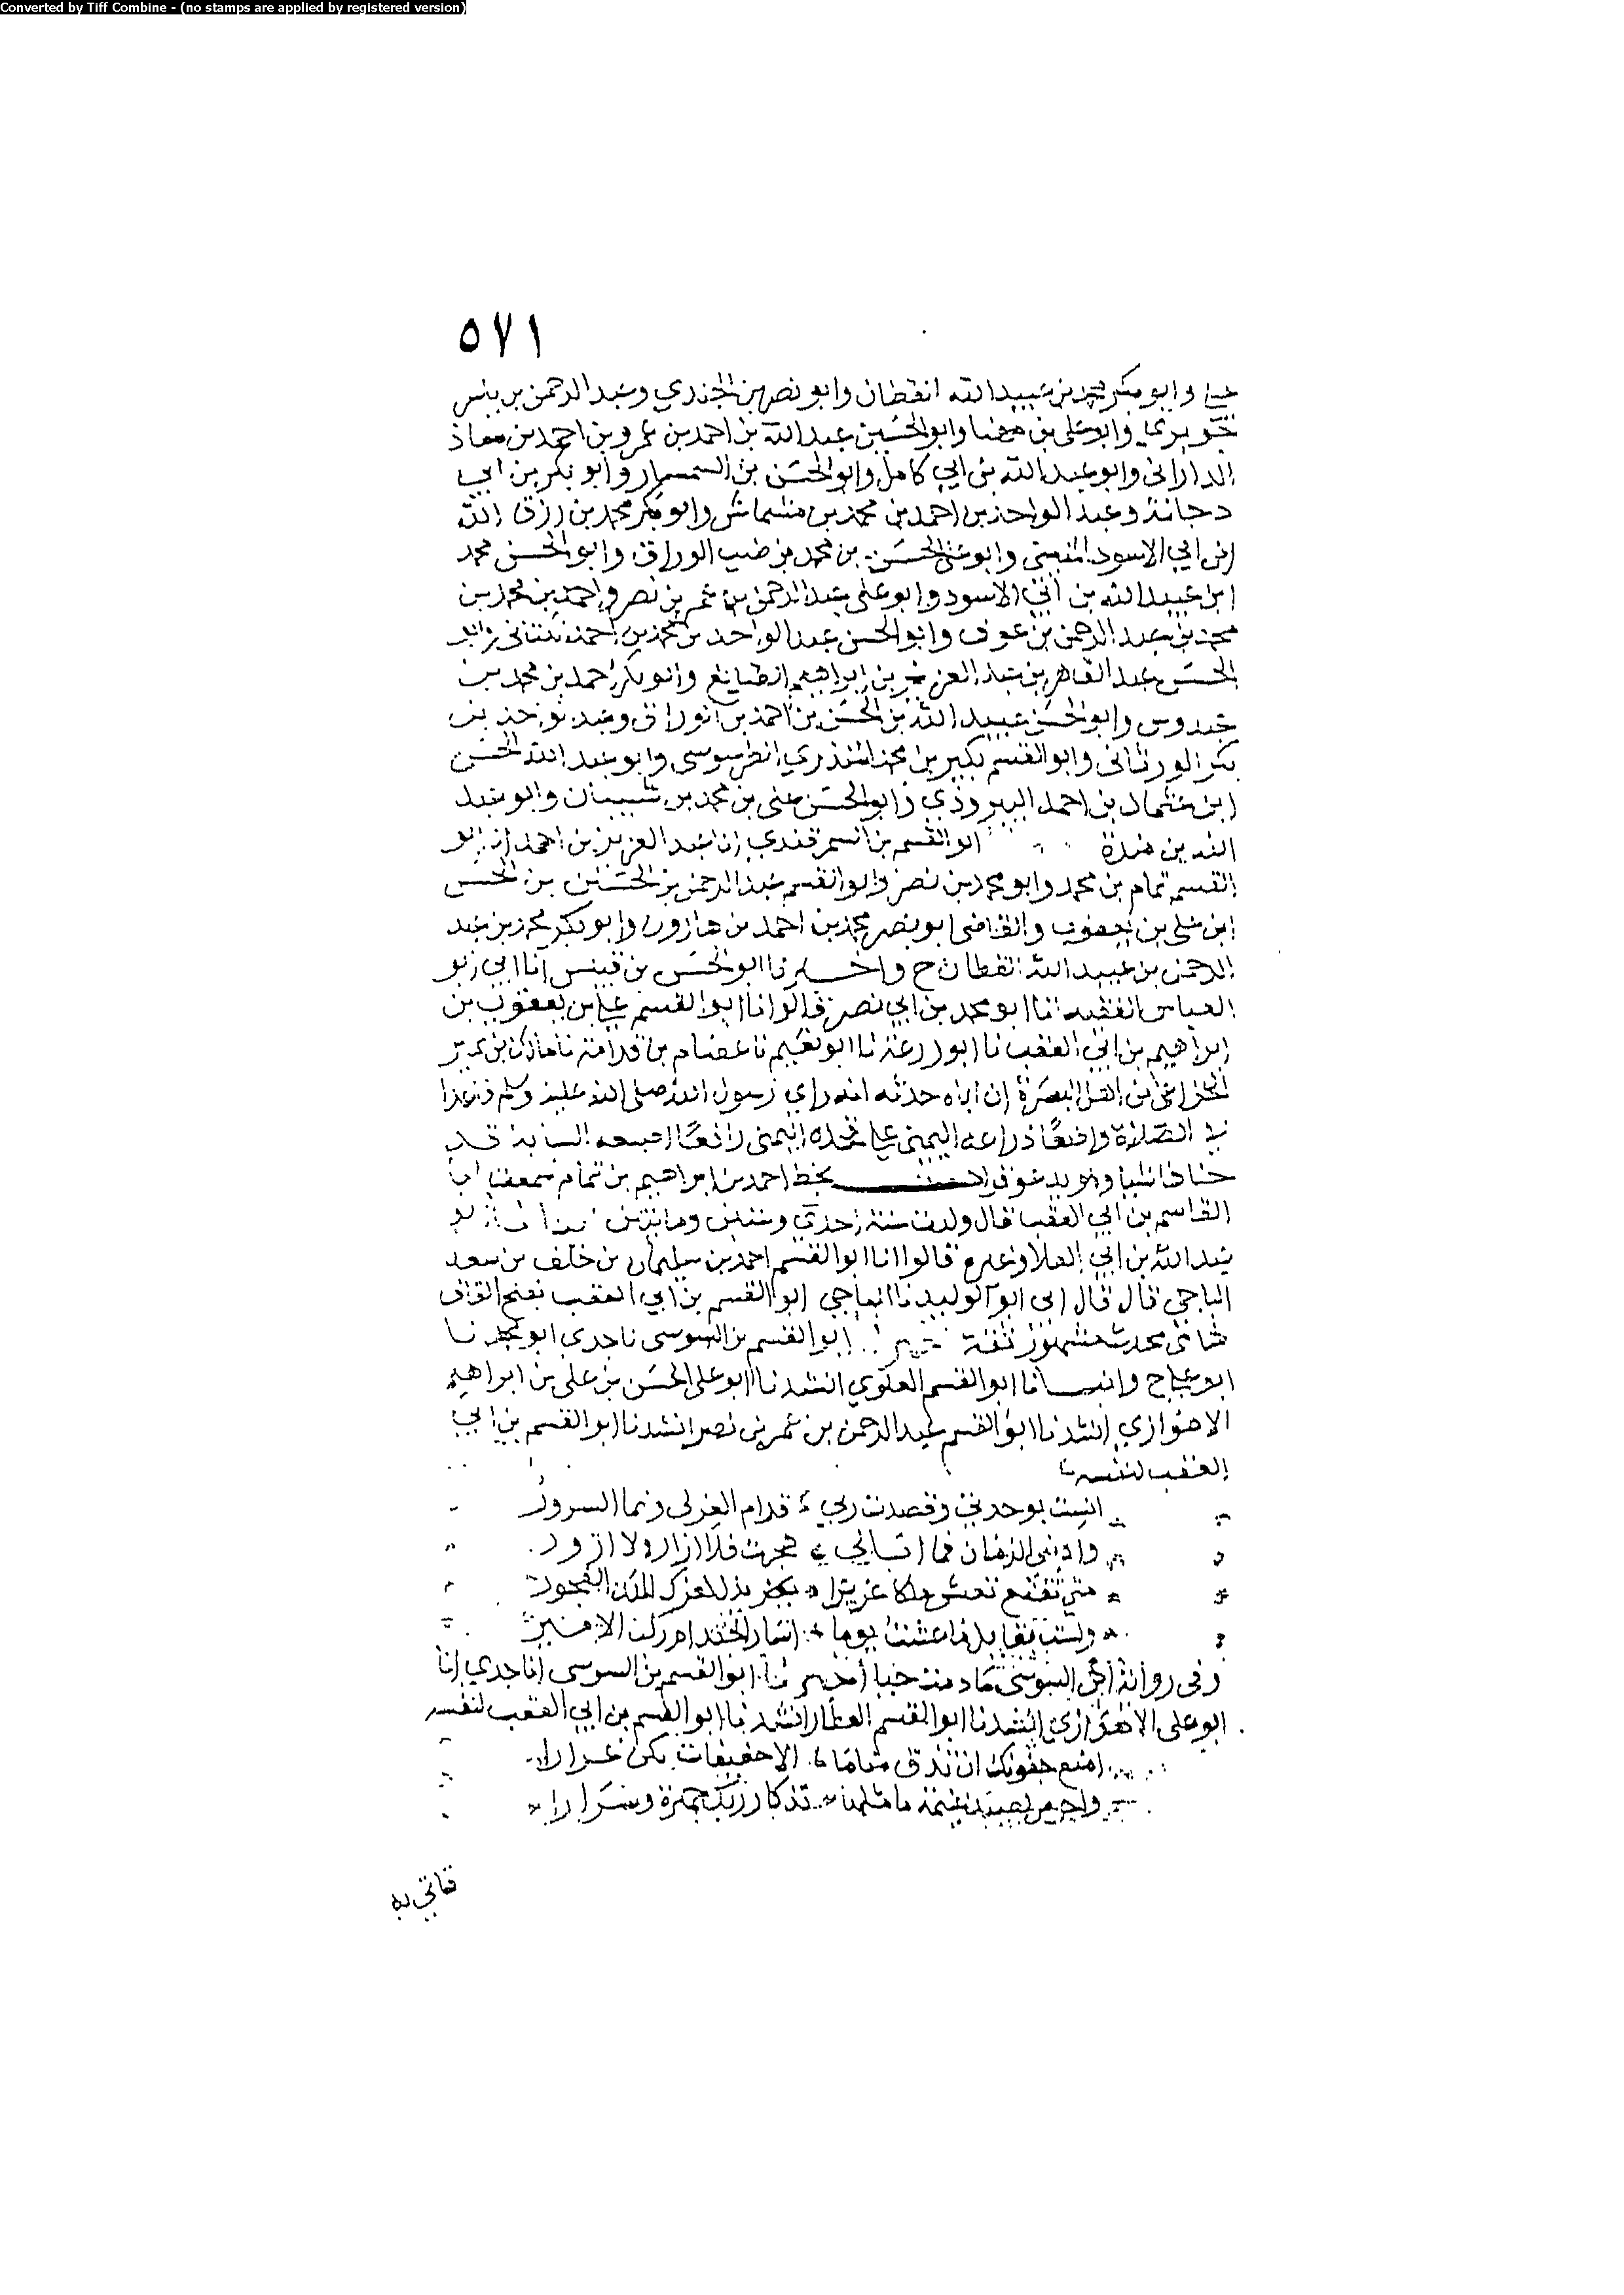 Converted by Tiff Combine - (no stamps are applied by registered version)
٥٧١
وابو بكر محمد بن عبيد الله القطان وابو نصر بن الجندي وعبد الرحمن بن
وابو علي بن مهنا وابو الحسين عبد الله بن احمد بن عمرو بن احمد بن معاذ
الداراني وابو عبد الله بن ابي كامل وابو الحسن بن السمسار وابو بكر بن ابي
دجانة وعبد الواحد بن احمد بن محمد بن مشماش وابو بكر محمد بن رزق الله
ابن ابي الاسود المنيني وابو علي الحسن بن محمد بن الوراق وابو الحسن محمد
ابن عبيد الله بن ابي الاسود وابو علي عبد الرحمن بن عمر بن نصر واحمد بن محمد بن
محمد بن عبد الرحمن بن عوف وابو الحسن عبد الواحد بن محمد بن احمد وابو
الحسن عبد القاهر بن عبد العزيز بن ابراهيم الصايغ وابو بكر احمد بن محمد بن
عبدوس وابو الحسن عبيد الله بن الحسن بن احمد بن الوراق وعبد الواحد بن
بكر الورثاني وابو القسم بكير بن محمد المنذري الطرسوسي وابو عبد الله الحسن
ابن احمد البيروذي وابو الحسن علي بن محمد بن شيبان وابو عبد
الله بن مندة ابو القسم بن السمرقندي انا عبد العزيز بن احمد انا ابو
القسم تمام بن محمد وابو محمد بن نصر وابو القسم عبد الرحمن بن الحسين بن الحسن
ابن علي بن يعقوب والقاضي ابو نصر محمد بن احمد بن هارون وابو بكر محمد بن عبد
الرحمن بن عبيد الله القطان ح واخبرنا ابو الحسن بن قبيس انا ابي ابو
العباس الفقيه انا ابو محمد بن ابي نصر قالوا انا ابو القسم علي بن يعقوب بن
ابراهيم بن ابي العقب نا ابو زرعة نا ابو نعيم نا عصام بن قدامة نا مالك بن نمير
الخزاعي من اهل البصرة ان اباه حدثه انه راى رسول الله صلى الله عليه وسلم قاعدا
في الصلاة واضعا ذراعه اليمنى على فخذه اليمنى رافعا اصبعه السبابة قد
حناها شيا وهو يدعو بخط احمد بن ابراهيم بن تمام سمعت ابا
القاسم بن ابي العقب قال ولدت سنة احدى وستين ومايتين ابو
عبد الله بن ابي العلا وغيره قالوا انا ابو القسم احمد بن سليمان بن خلف بن سعد
الباجي قال قال ابي ابو الوليد نا الباجي ابو القسم بن ابي العقب بفتح القاف
شامي محدث مشهور ثقة ابو القسم بن السوسي نا جدي ابو محمد نا
ابو علي ح وانبانا ابو القسم العلوي انشدنا ابو علي الحسن بن علي بن ابراهيم
الاهوازي انشدنا ابو القسم عبد الرحمن بن عمر بن نصر انشدنا ابو القسم بن ابي
العقب لنفسه
انست بوحدتي وقصدت ربي فدام العز لي ونما السرور
وادبني الزمان فما ابالي هجرت فلا ازار ولا ازور
متى تقنع تعش ملكا عزيزا يذل لعزك الملك الفخور
ولست بقايل ما عشت يوما اسار الجند ام ركب الامير
وفي رواية ابن السوسي ما دمت حيا اخبرنا ابو القسم بن السوسي انا جدي انا
ابو علي الاهوازي انشدنا ابو القسم العطار انشدنا ابو القسم بن ابي العقب لنفسه
امنع جفونك ان تذق مناما
فاتى به